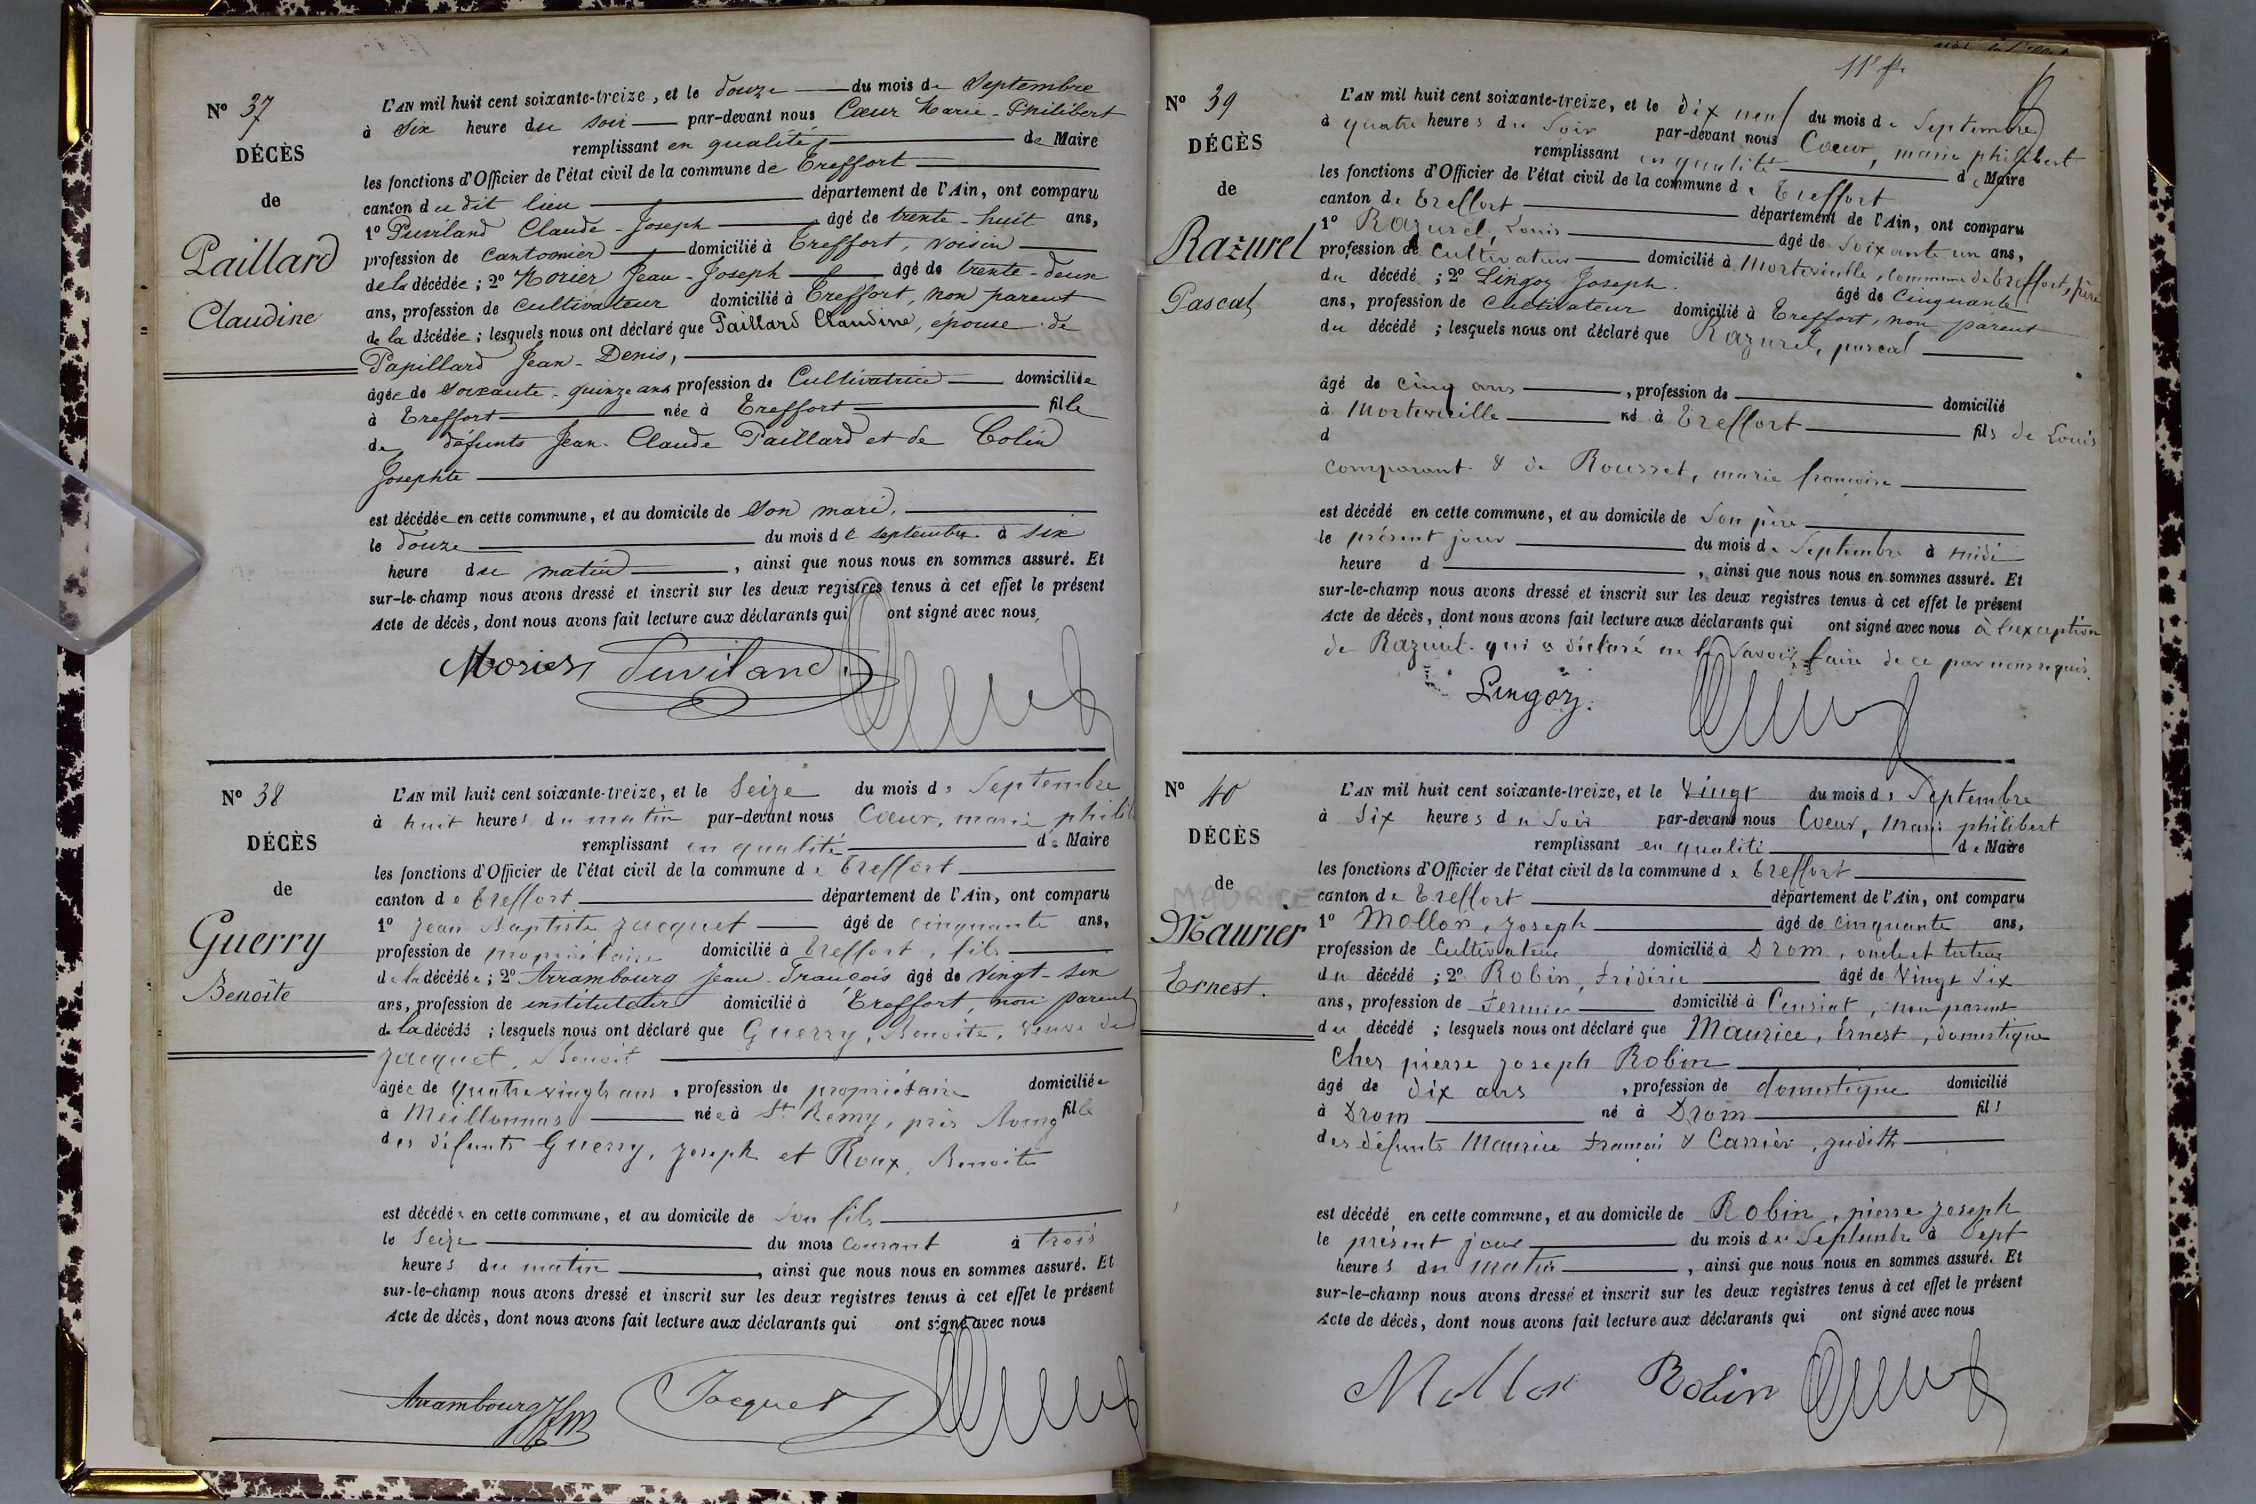 N° 37
DÉCÈS
de
Paillard
Claudine
L'AN mil huit cent soixante-treize, et le douze du mois de Septembre
à Six heure du soir par-devant nous Cœur Marie-Philibert
remplissant en qualité de Maire
les fonctions d'Officier de l'état civil de la commune de Treffort
canton du dit lieu département de l'Ain, ont comparu
1° Puviland Claude-Joseph âgé de trente-huit ans,
profession de Cantonnier domicilié à Treffort, voisin
de la décédée; 2° Morier Jean-Joseph âgé de trente-deux
ans, profession de Cultivateur domicilié à Treffort, non parent
de la décédée; lesquels nous ont déclaré que Paillard Claudine, épouse de
Papillard Jean-Denis,
âgée de soixante-quinze ans profession de Cultivatrice domiciliée
à Treffort née à Treffort fille
de défunts Jean-Claude Paillard et de Colin
Josephte
est décédée en cette commune, et au domicile de son mari,
le douze du mois de septembre à six
heure du matin, ainsi que nous nous en sommes assuré. Et
sur-le-champ nous avons dressé et inscrit sur les deux registres tenus à cet effet le présent
Acte de décès, dont nous avons fait lecture aux déclarants qui ont signé avec nous.
Morier Puviland
N° 38
DÉCÈS
de
Guerry
Benoîte
L'AN mil huit cent soixante-treize, et le Seize du mois de Septembre
à huit heures du matin par-devant nous Cœur, marie
remplissant en qualité de Maire
les fonctions d'Officier de l'état civil de la commune de Treffort
canton de Treffort département de l'Ain, ont comparu
1° Jean Baptiste Jacquet âgé de cinquante ans,
profession de propriétaire domicilié à Treffort, fils
de la décédée; 2° Arrambourg Jean-François âgé de vingt-six
ans, profession de instituteur domicilié à Treffort, non parent
de la décédé; lesquels nous ont déclaré que Guerry, Benoite, veuve de
Jacquet, Benoit
âgée de quatre vingts ans, profession de propriétaire domiciliée
à Meillonnas née à St Remy, près fille
des défunts Guerry, Joseph et Roux, Benoite
est décédée en cette commune, et au domicile de son fils
le Seize du mois courant à trois
heures du matin, ainsi que nous nous en sommes assuré. Et
sur-le-champ nous avons dressé et inscrit sur les deux registres tenus à cet effet le présent
Acte de décès, dont nous avons fait lecture aux déclarants qui ont signé avec nous
Arrambourg Jacquet
11e f
N° 39
DÉCÈS
de
Razurel
Pascal
L'AN mil huit cent soixante-treize, et le dix neuf du mois de Septembre
à quatre heures du Soir par-devant nous Cœur, marie philibert
remplissant en qualité de Maire
les fonctions d'Officier de l'état civil de la commune de Treffort
canton de Treffort département de l'Ain, ont comparu
1° Razurel, Louis âgé de Soixante un ans,
profession de Cultivateur domicilié à Morteveille, commune de Treffort, père
du décédé; 2° Lingoz Joseph. âgé de Cinquante
ans, profession de Cultivateur domicilié à Treffort, non parent
du décédé; lesquels nous ont déclaré que Razurel, pascal
âgé de cinq ans, profession de domicilié
à Morteveille né à Treffort fils de Louis
d
comparant & de Rousset, marie francoise
est décédé en cette commune, et au domicile de Son père
le présent jour du mois de Septembre à midi
heure d, ainsi que nous nous en sommes assuré. Et
sur-le-champ nous avons dressé et inscrit sur les deux registres tenus à cet effet le présent
Acte de décès, dont nous avons fait lecture aux déclarants qui ont signé avec nous à l'exception
de Razurel qui a déclaré ne le Savoir faire de ce par nous requis.
Lingoz.
N° 40
DÉCÈS
de
MAURICE
Maurier
Ernest.
L'AN mil huit cent soixante-treize, et le Vingt du mois de Septembre
à Six heures du Soir par-devant nous Cœur, Marie philibert
remplissant en qualité de Maire
les fonctions d'Officier de l'état civil de la commune de Treffort
canton de Treffort département de l'Ain, ont comparu
1° Mollon, Joseph âgé de cinquante ans,
profession de Cultivateur domicilié à Drom, oncle et tuteur
du décédé; 2° Robin, Frédéric âgé de Vingt Six
ans, profession de Fermier domicilié à Cuisiat, non parent
du décédé; lesquels nous ont déclaré que Maurice, Ernest, domestique
Chez pierre Joseph Robin
âgé de dix ans, profession de domestique domicilié
à Drom né à Drom fils
des défunts Maurice François & Carrier, Judith
est décédé en cette commune, et au domicile de Robin, pierre Joseph
le présent jour du mois de Septembre à Sept
heures du Matin, ainsi que nous nous en sommes assuré. Et
sur-le-champ nous avons dressé et inscrit sur les deux registres tenus à cet effet le présent
Acte de décès, dont nous avons fait lecture aux déclarants qui ont signé avec nous
Mollon Robin